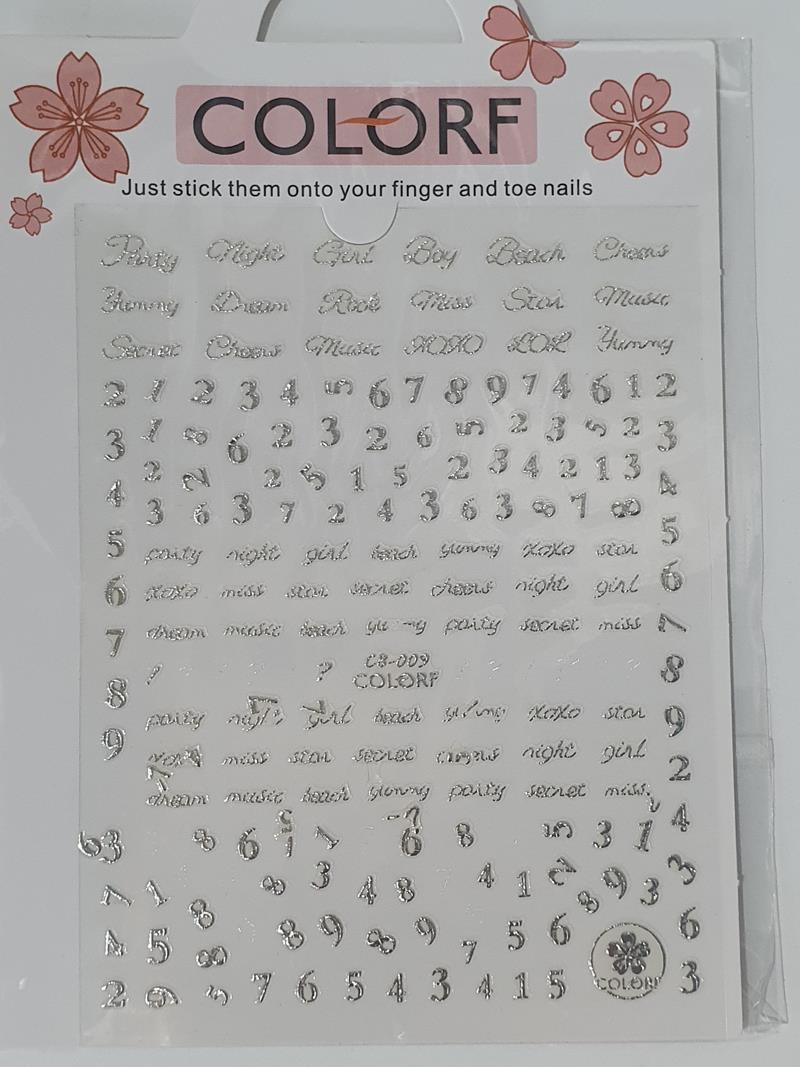 COLORF
Just stick them onto your finger and toe nails
Party Night Girl Boy Beach Cheers
Yummy Dream Rock Miss Star Music
Secret Cheers Music XOXO LOL Yummy
2 1 2 3 4 5 6 7 8 9 7 4 6 1 2
3 1 8 6 2 3 2 6 5 2 3 5 2 3
2 2 2 5 1 5 2 3 4 2 1 3
4 3 6 3 7 2 4 3 6 3 8 7 8 4
5 party night girl beach yummy xoxo star 5
6 xoxo miss star secret cheers night girl 6
7 dream music beach yummy party secret miss 7
8 C8-009 8
COLORF
party night girl beach yummy xoxo star 9
9 xoxo miss star secret cheers night girl 2
dream music beach yummy party secret miss
6 3 8 6 1 1 6 8 5 3 1 4
7 1 8 8 3 4 8 4 1 2 8 9 3 3
4 5 8 8 9 8 9 7 5 6 6
2 9 5 7 6 5 4 3 4 1 5 COLORF 3